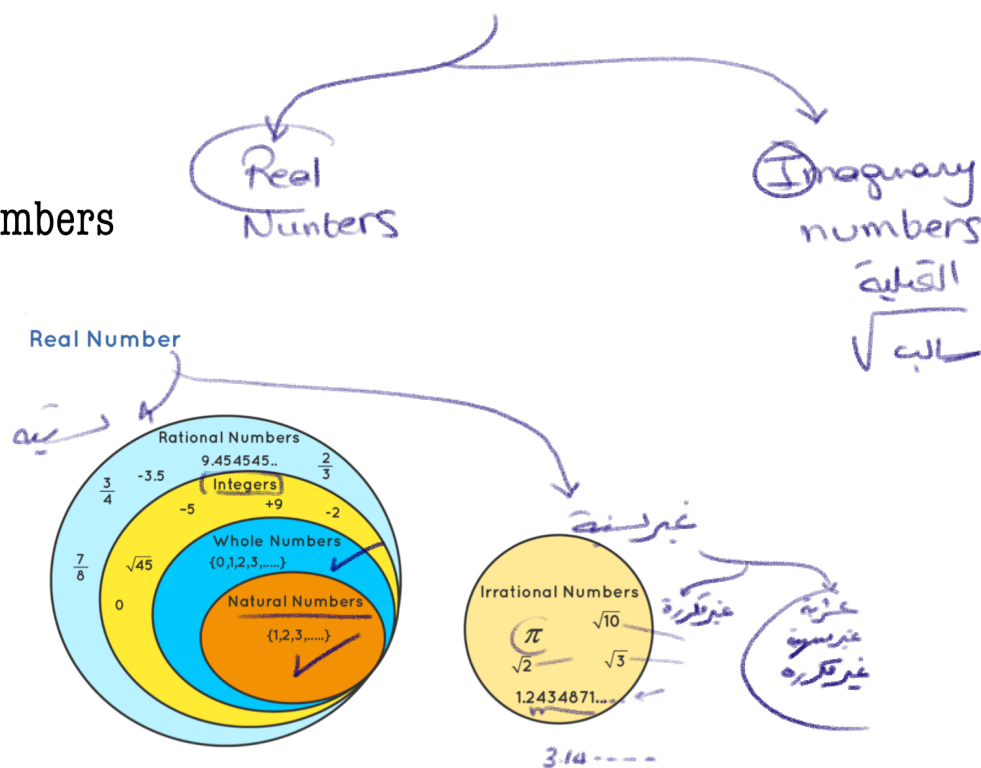 Real
Nunbers
Imaginary
numbers
التخيلية
√سالب
mbers
Real Number
نسبية
Rational Numbers
9.454545..
2/3
-3.5
3/4
Integers
-5
+9
-2
Whole Numbers
{0,1,2,3,.....}
7/8
√45
0
Natural Numbers
{1,2,3,.....}
غير نسبية
Irrational Numbers
π
√10
√2
√3
1.2434871...
3.14-----
غير مكررة
عشرية
غير منتهية
غير مكررة